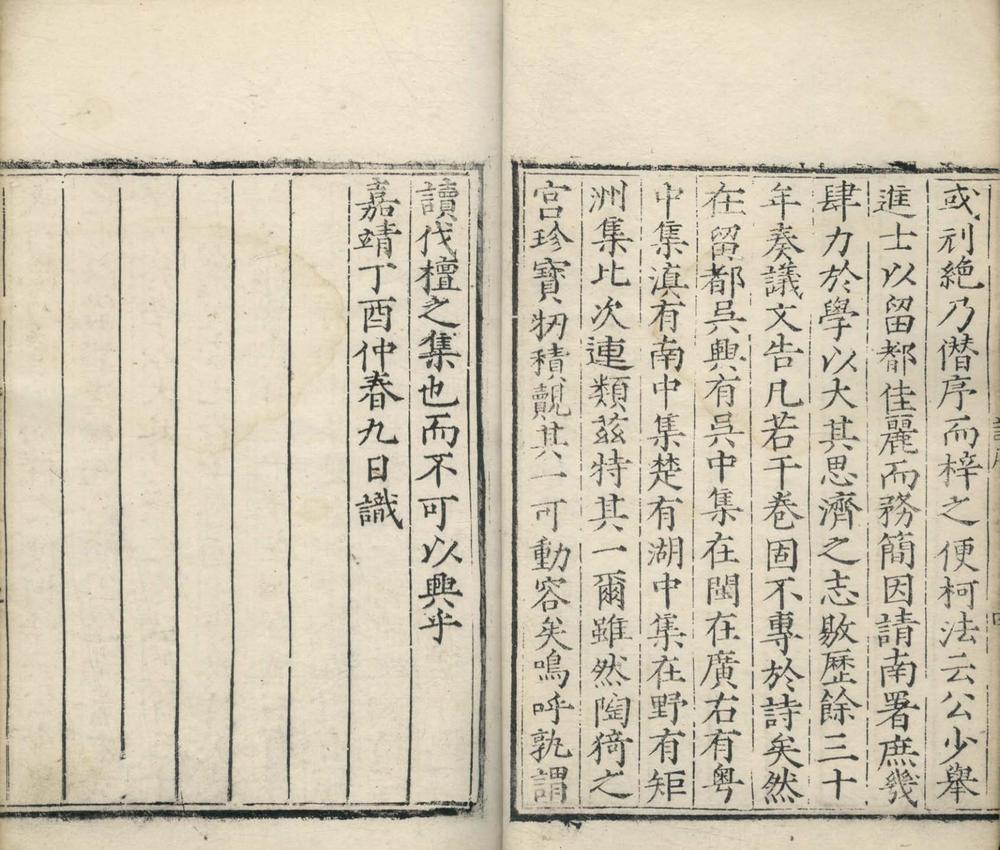 或刋絶乃僭序而梓之便柯法云公少舉
進士以留都佳麗而務簡因請南署庶幾
肆力於學以大其思濟之志敭歷餘三十
年奏議文告凡若干卷固不專於詩矣然
在留都吳興有吳中集在閩在廣右有粤
中集滇有南中集楚有湖中集在野有矩
洲集比次連類茲特其一爾雖然陶猗之
宫珍寶牣積覿其一可動容矣嗚呼孰謂
讀伐檀之集也而不可以興乎
嘉靖丁酉仲春九日識